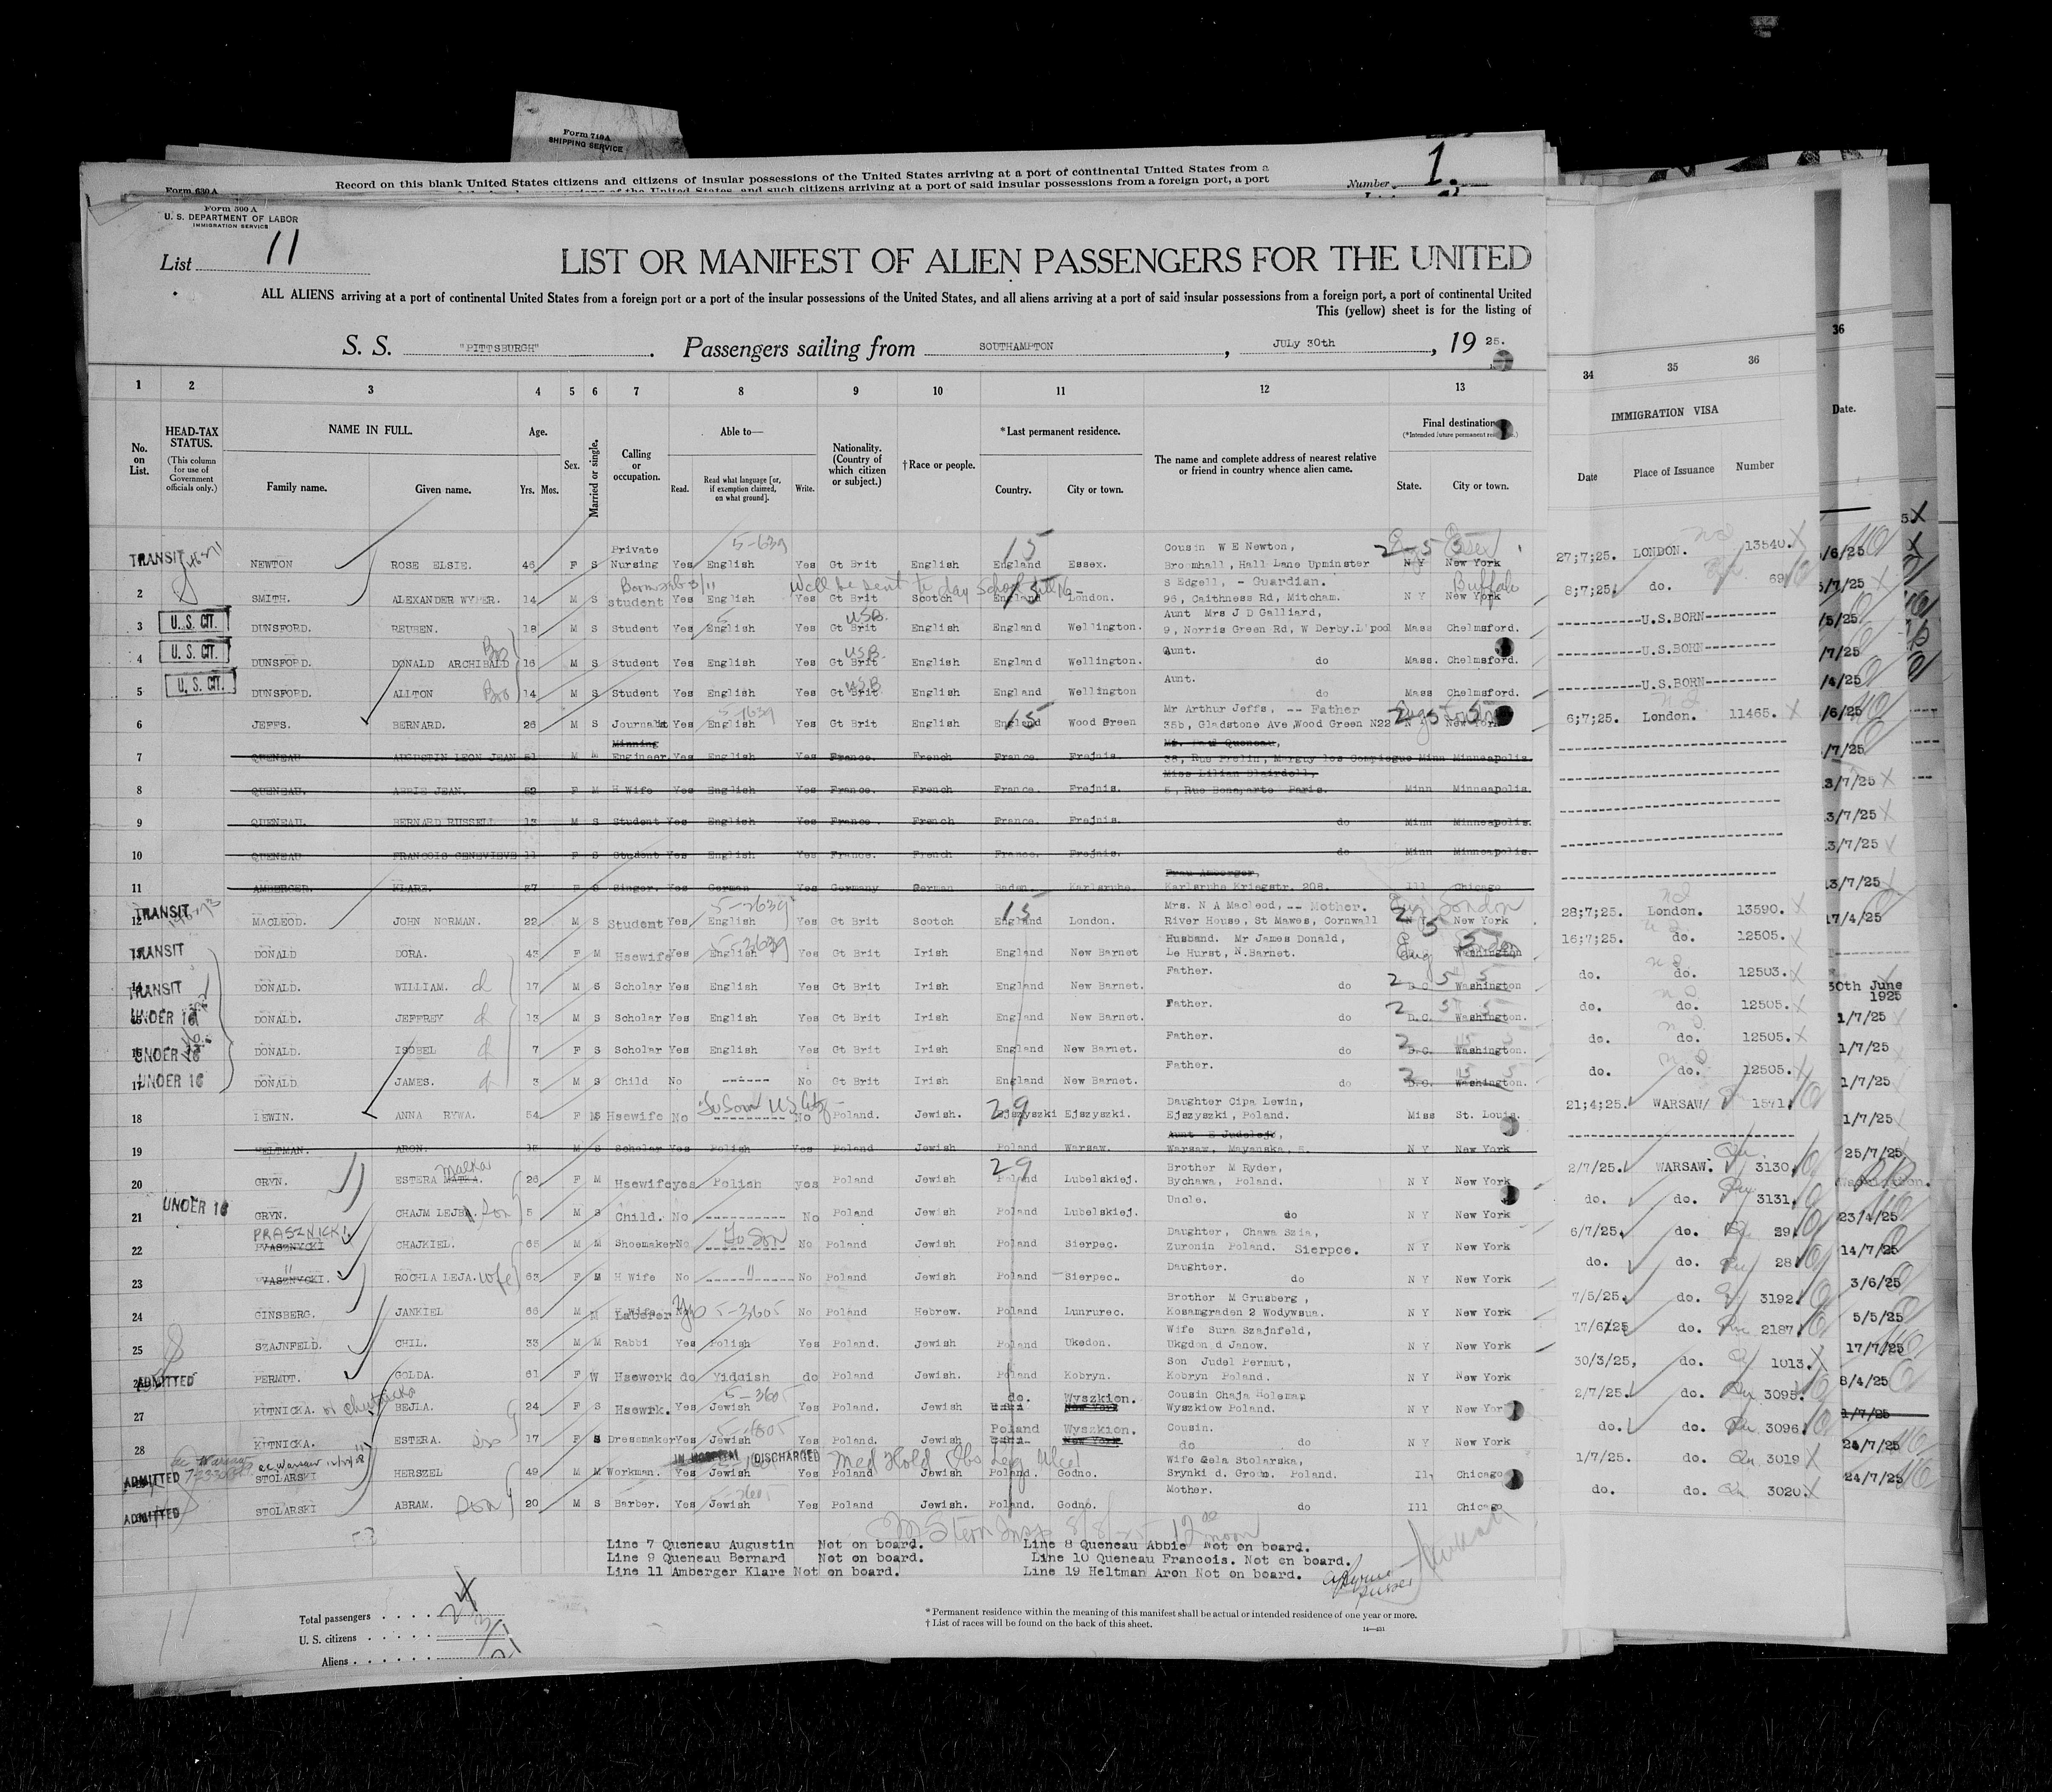 Form 710A
SHIPPING SERVICE
Form 630 A
Record on this blank United States citizens and citizens of insular possessions of the United States arriving at a port of continental United States from a
of the United States, and such citizens arriving at a port of said insular possessions from a foreign port, a port
Number 1.
Form 500 A
U. S. DEPARTMENT OF LABOR
IMMIGRATION SERVICE
List 11
LIST OR MANIFEST OF ALIEN PASSENGERS FOR THE UNITED
ALL ALIENS arriving at a port of continental United States from a foreign port or a port of the insular possessions of the United States, and all aliens arriving at a port of said insular possessions from a foreign port, a port of continental United
This (yellow) sheet is for the listing of
S. S. "PITTSBURGH" . Passengers sailing from SOUTHAMPTON , JULy 30th , 19 25.
1 2 3 4 5 6 7 8 9 10 11 12 13 34 35 36 36
No. on List. HEAD-TAX STATUS. (This column for use of Government officials only.) NAME IN FULL. Family name. Given name. Age. Yrs. Mos. Sex. Married or single. Calling or occupation. Able to— Read. Read what language [or, if exemption claimed, on what ground]. Write. Nationality. (Country of which citizen or subject.) †Race or people. *Last permanent residence. Country. City or town. The name and complete address of nearest relative or friend in country whence alien came. Final destination (*Intended future permanent State. City or town.
IMMIGRATION VISA Date Place of Issuance Number Date.
TRANSIT NEWTON ROSE ELSIE. 46 F S Private Nursing Yes English 5-639 Yes Gt Brit English England 15 Essex. Cousin W E Newton, Broomhall, Hall Lane Upminster N Y New York 27;7;25. LONDON. 13540.
Born Feb 3/11 Will be sent to day school till 16
2 SMITH. ALEXANDER WYPER. 14 M S student Yes English Yes Gt Brit Scotch England 15 London. S Edgell, - Guardian. 96, Caithness Rd, Mitcham. N Y New York Buffalo 8;7;25. do. 69
3 U. S. CIT. DUNSFORD. REUBEN. 18 M S Student Yes English Yes Gt Brit USB. English England Wellington. Aunt Mrs J D Galliard, 9, Norris Green Rd, W Derby.L'pool Mass Chelmsford. U.S.BORN
4 U. S. CIT. DUNSFORD. DONALD ARCHIBALD Bro 16 M S Student Yes English Yes Gt Brit USB. English England Wellington. Aunt. do Mass. Chelmsford. U.S.BORN
5 U. S. CIT. DUNSFORD. ALLTON Bro 14 M S Student Yes English Yes Gt Brit USB English England Wellington Aunt. do Mass Chelmsford. U.S.BORN
6 JEFFS. BERNARD. 26 M S Journalist Yes English 5-1639 Yes Gt Brit English England 15 Wood Green Mr Arthur Jeffs, -- Father 35b, Gladstone Ave,Wood Green N22 N Y New York 6;7;25. London. 11465.
7 QUENEAU AUGUSTIN LEON JEAN 51 M M Minning Engineer Yes English Yes France. French France. Frejnis. Mr. Paul Queneau, 38, Rue Prelin, Marguy les Compiegne Minn Minneapolis.
8 QUENEAU. ABBIE JEAN. 52 F M H Wife Yes English Yes France. French France. Frejnis. Miss Lilian Blairdell, 5, Rue Bonaparte Paris. Minn Minneapolis.
9 QUENEAU. BERNARD RUSSELL 13 M S Student Yes English Yes France. French France. Frejnis. do Minn Minneapolis.
10 QUENEAU FRANCOIS GENEVIEVE 11 F S Student Yes English Yes France. French France. Frejnis. do Minn Minneapolis.
11 AMBERGER. KLARE. 37 F S Singer. Yes German Yes Germany German Baden. Karlsruhe. Frau Amberger, Karlsruhe Kriegstr. 208. Ill Chicago
TRANSIT 12 MACLEOD. JOHN NORMAN. 22 M S Student Yes English 5-2639 Yes Gt Brit Scotch England 15 London. Mrs. N A Macleod, -- Mother. River House, St Mawes, Cornwall N Y New York 28;7;25. London. 13590.
TRANSIT 13 DONALD DORA. 43 F M Hsewife Yes English 5-3639 Yes Gt Brit Irish England New Barnet Husband. Mr James Donald, Le Hurst, N.Barnet. Washington 16;7;25. do. 12505.
TRANSIT 14 DONALD. WILLIAM. 17 M S Scholar Yes English Yes Gt Brit Irish England New Barnet. Father. do D.C. Washington do. do. 12503.
UNDER 16 DONALD. JEFFREY 13 M S Scholar Yes English Yes Gt Brit Irish England New Barnet. Father. do D.C. Washington. do. do. 12505.
UNDER 16 DONALD. ISOBEL 7 F S Scholar Yes English Yes Gt Brit Irish England New Barnet. Father. do D.C. Washington. do. do. 12505.
17 UNDER 16 DONALD JAMES. 3 M S Child No No Gt Brit Irish England New Barnet. Father. do D.C. Washington. do. do. 12505.
18 LEWIN. ANNA RYWA. 54 F M Hsewife No To Son US No Poland. Jewish. Ejszyszki 29 Ejszyszki. Daughter Cipa Lewin, Ejszyszki, Poland. Miss St. Louis. 21;4;25. WARSAW/ 1571
19 HELTMAN. ARON. 15 M S Scholar Yes Polish Yes Poland Jewish Poland Warsaw. Aunt E Judelejt, Warsaw, Mayanska, 5. N Y New York
20 GRYN. ESTERA MATKA. Malka 26 F M Hsewife yes Polish yes Poland Jewish Poland 29 Lubelskiej. Brother M Ryder, Bychawa, Poland. N Y New York 2/7/25. WARSAW. 3130.
21 UNDER 16 GRYN. CHAJM LEJBA. Son 5 M S Child. No No Poland Jewish Poland Lubelskiej. Uncle. do N Y New York do. do. 3131.
PRASZNICKI
22 CHAJKIEL. 65 M M Shoemaker No To Son No Poland Jewish Poland Sierpec. Daughter, Chawa Szia, Zuronin Poland. Sierpce. N Y New York 6/7/25. do. 29
23 " ROCHLA LEJA. wife 63 F M H Wife No " No Poland Jewish Poland Sierpec. Daughter. do N Y New York do. do. 28
24 GINSBERG. JANKIEL 66 M M Laborer 5-3605 No Poland Hebrew. Poland Lunrurec. Brother M Grusberg, Kosamgraden 2 Wodywsua. N Y New York 7/5/25. do. 3192.
25 SZAJNFELD. CHIL. 33 M M Rabbi Yes Polish Yes Poland. Jewish Poland Ukedon. Wife Sura Szajnfeld, Ukgdon d Janow. N Y New York 17/6/25 do. 2187.
ADMITTED PERMUT. GOLDA. 61 F W Hsework do Yiddish do Poland Jewish. Poland Kobryn. Son Judel Permut, Kobryn Poland. N Y New York 30/3/25, do. 1013.
27 KUTNICKA. or Chutnicka BEJLA. 24 F S Hsewrk. Yes Jewish 5-3605 Yes Poland. Jewish do. Wyszkion. New York Cousin Chaja Holeman Wyszkiow Poland. N Y New York 2/7/25. do. 3095.
28 KUTNICKA. ESTERA. sis 17 F S Dressmaker Yes Jewish Yes Poland. Jewish Poland Wyszkion. New York Cousin. do do N Y New York do. do. 3096
IN HOSPITAL DISCHARGED Med Hold
ADMITTED STOLARSKI HERSZEL 49 M M Workman. Yes Jewish Yes Poland Jewish Poland. Godno. Wife Gela Stolarska, Srynki d. Grodn. Poland. Ill Chicago 1/7/25. do. 3019
ADMITTED STOLARSKI ABRAM. son 20 M S Barber. Yes Jewish Yes Poland Jewish. Poland. Godno. Mother. do Ill Chicago do. do. 3020.
M Stern Insp 8/8/25 12 noon
Line 7 Queneau Augustin Not on board. Line 8 Queneau Abbie Not on board.
Line 9 Queneau Bernard Not on board. Line 10 Queneau Francois. Not on board.
Line 11 Amberger Klare Not on board. Line 19 Heltman Aron Not on board.
Total passengers
U. S. citizens
Aliens
* Permanent residence within the meaning of this manifest shall be actual or intended residence of one year or more.
† List of races will be found on the back of this sheet.
14—431
/6/25
/5/25
/7/25
/4/25
/6/25
/7/25
3/7/25
3/7/25
3/7/25
13/7/25
17/4/25
30th June 1925
1/7/25
1/7/25
1/7/25
1/7/25
25/7/25
23/4/25
14/7/25
3/6/25
5/5/25
17/7/25
8/4/25
1/7/25
24/7/25
24/7/25